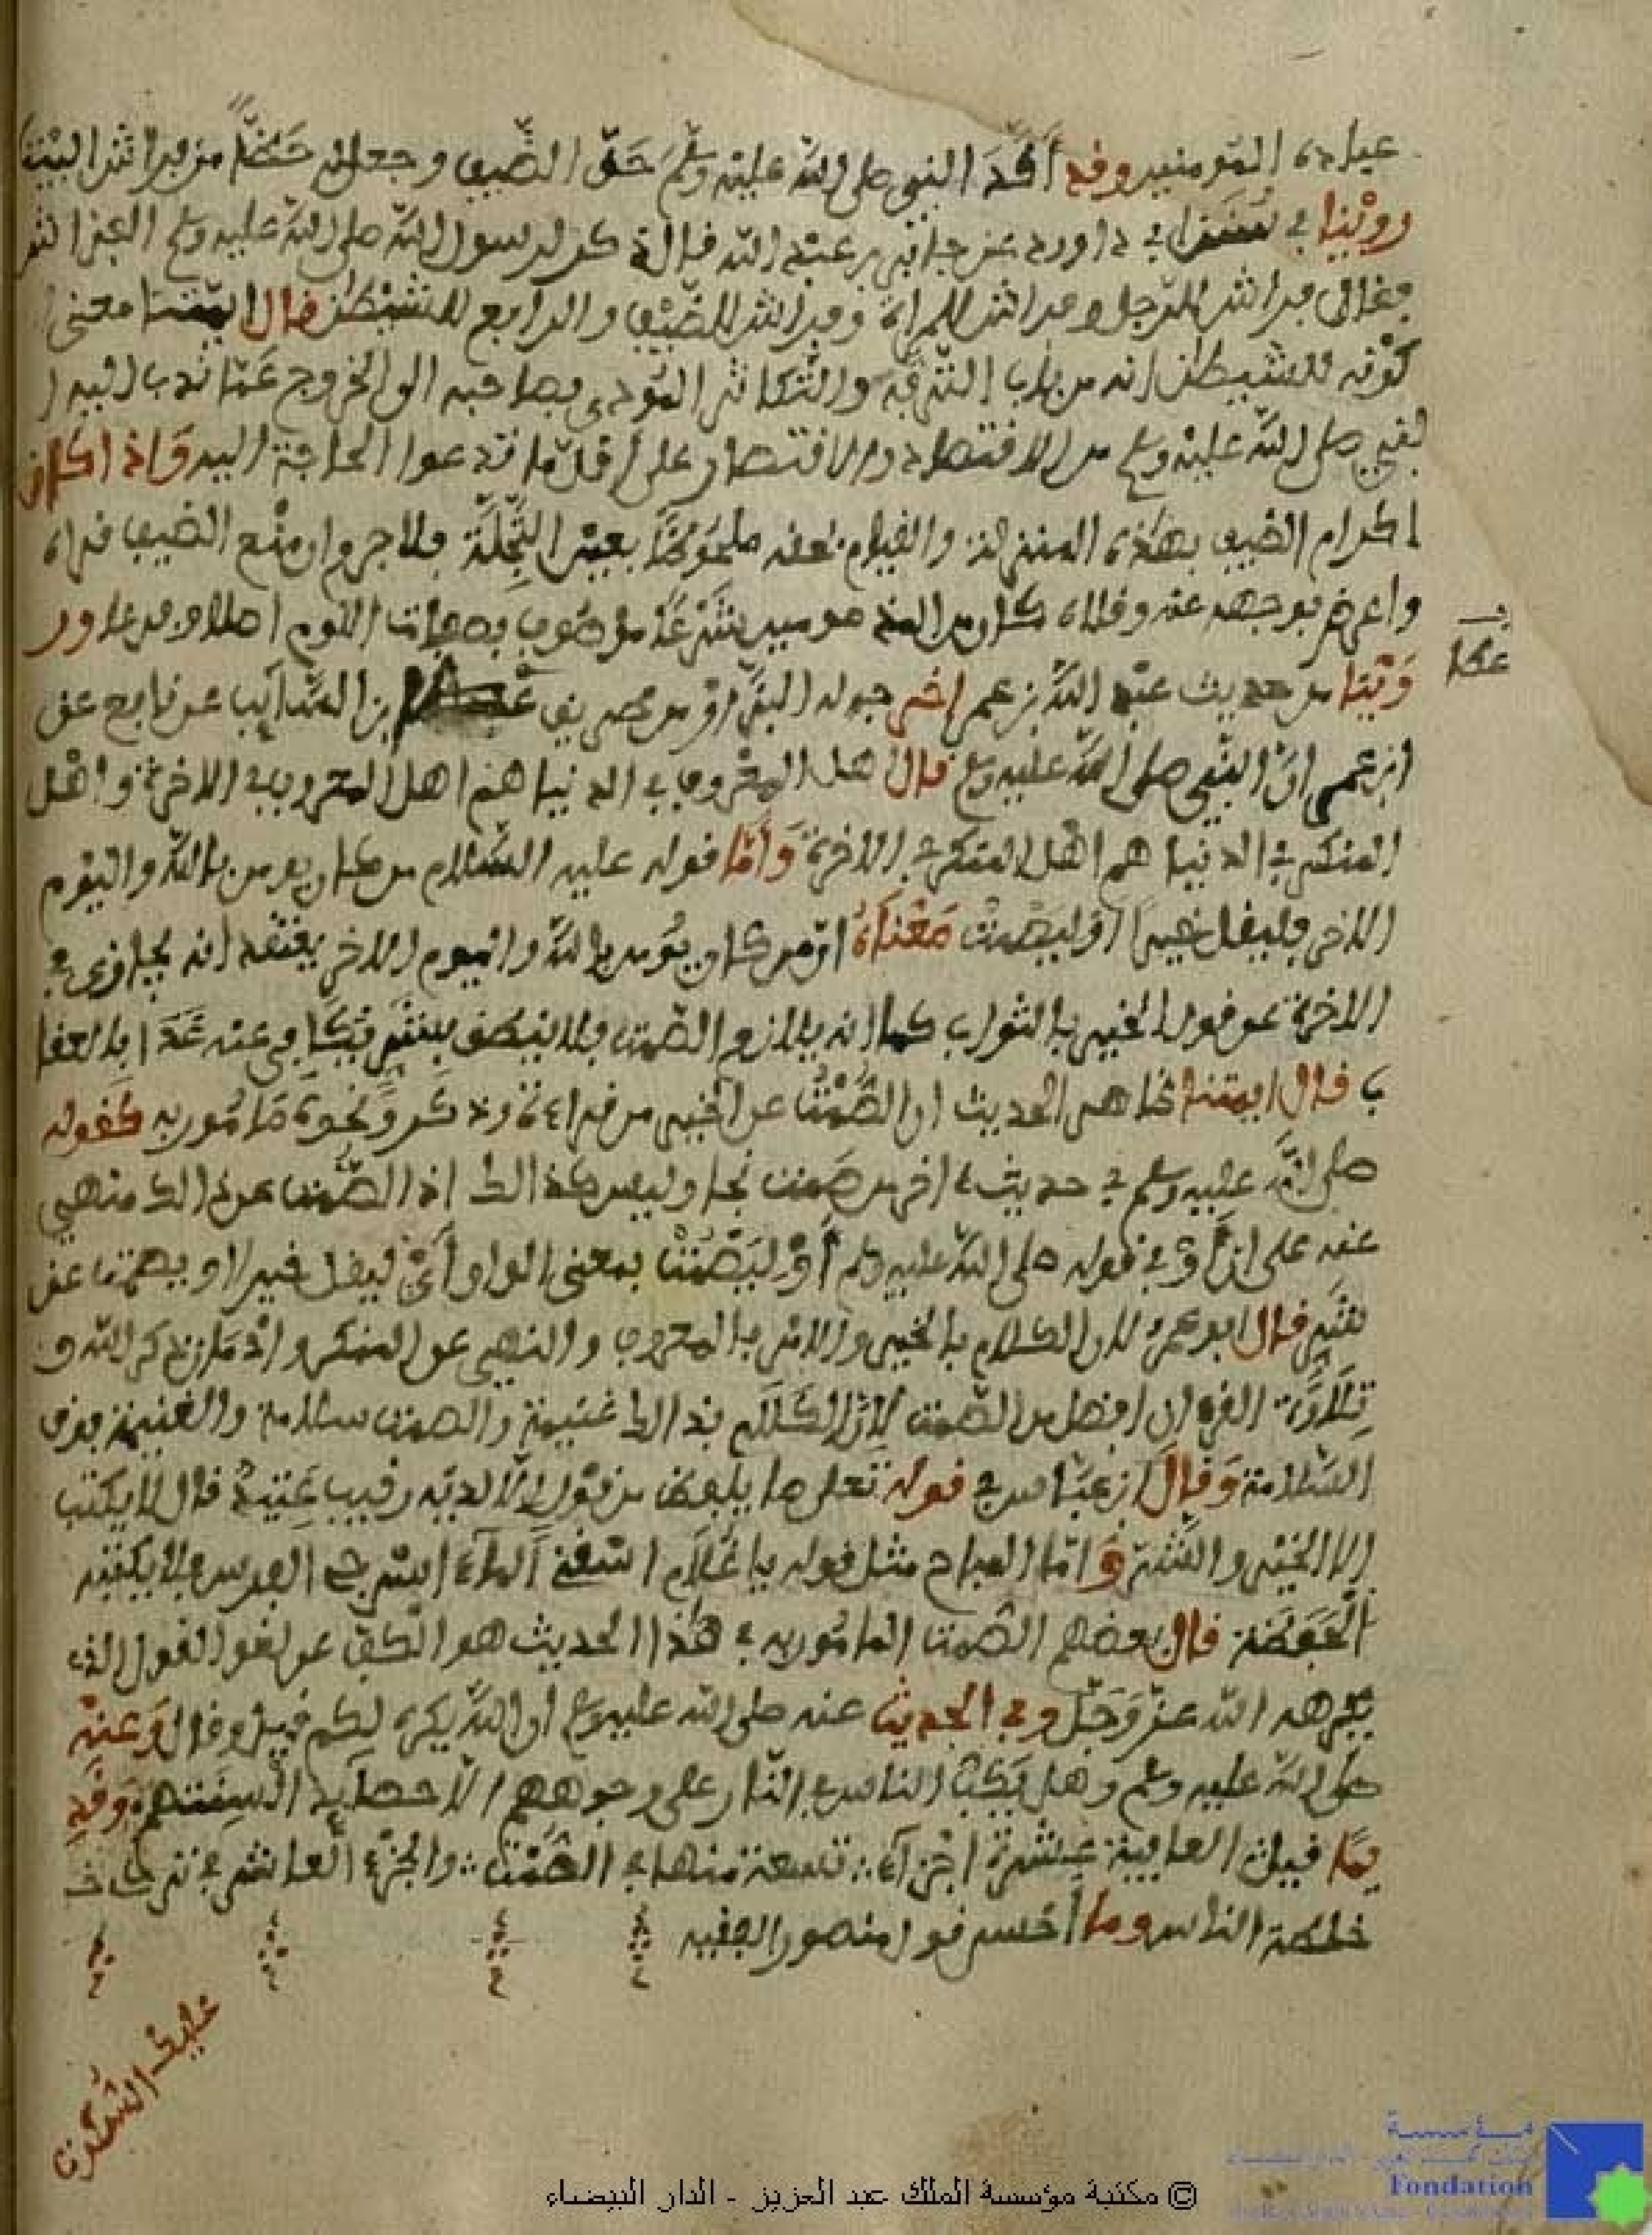 عباده المؤمنين وقد أكّد النبي صلى الله عليه وسلم حق الضيف وجعل له حظّا من فراش البيت
روينا في سنن ابي داوود عن جابر بن عبد الله قال ذكر رسول الله صلى الله عليه وسلم الفرش
فقال فراش للرجل وفراش للمرأة وفراش للضيف والرابع للشيطن قال ايمتنا معنى
كونه للشيطن انه من باب الترفه والتكاثر المؤدي بصاحبه الى الخروج عما ندب اليه
النبي صلى الله عليه وسلم من الاقتصاد والاقتصار على أقل ما تدعوا الحاجة اليه وَإذا كان
اكرام الضيف بهذه المنزلة والقيام بحقه ملحوظا بعين التجلة فلا جرم ان منع الضيف قراه
واعرض بوجهه عنه وقلاه كان من المذمومين شرعًا موصوف بصفات اللوم اصلا وفرعا ور
وَيْنا من حديث عبد الله بن عمر اخرجه البزّار من طريق بن السّائب عن نافع عن
عطا
ابن عمر انّ النبي صلى الله عليه وسلم قال اهل المعروف في الدنيا هم اهل المعروف في الاخرة وأهل
المنكر في الدنيا هم اهل المنكر في الاخرة وَأمّا قوله عليه السّلام من كان يومن بالله واليوم
الاخر فليقل خيرا أو ليصمت مَعْناهُ انّ من كان يُومن بالله واليوم الاخر يعتقد انه يجازى في
الاخرة عن قول الخير بالثواب كما انه يلازم الصّمت فلا ينطق بشر فيكافى عنه غدا بالعقا
ب قال ايمتنا ظاهر الحديث ان الصَّمْتَ عن الخير من قراءة وذكر ونحوه مأمور به كقوله
صلى الله عليه وسلم في حديثه اخر من صَمت نجا وليس كذالك اذ الصّمت عن ذالك منهي
عنه على انّ أوْ في قوله صلى الله عليه وسلم أوْ ليَصْمُتْ بمعنى الواو أيْ ليقل خيرا وليصمت عن
شر قال ابو عمر لان الكلام بالخير والامر بالمعروف والنهي عن المنكر وإدمان ذكر الله و
تِلاوَة القرءان افضل من الصّمت لانّ الكلام بذالك غنيمة والصمت سلامة والغنيمة فوق
السّلامة وَقال ابن عبّاس في قوله تعلى ما يلفظ من قول الا لديه رقيب عتيد قال لا يكتب
الا الخير والشر وَامّا المباح مثل قوله يا غلام اسقني الماء اسرج الفرس فلا يكتبه
الحَفَظَة قال بعضهم الصّمت المامور به في هذا الحديث هو الكف عن لغو القول الذي
يكرهه الله عز وَجَلّ وفي الحديث عنه صلى الله عليه وسلم ان الله يكره لكم قيل وقال وَعنه
صلى الله عليه وسلم وهل يَكبّ الناس في النار على وجوههم الا حصايد السنتهم وَقد
يمًا قيل العافية عشرة اجزآء تسعة منها في الصَّمْت والجزء العاشر في ترك
خلطة الناس وما أحسن قول منصور الفقيه
© مكتبة مؤسسة الملك عبد العزيز - الدار البيضاء
مؤسسة
Fondation